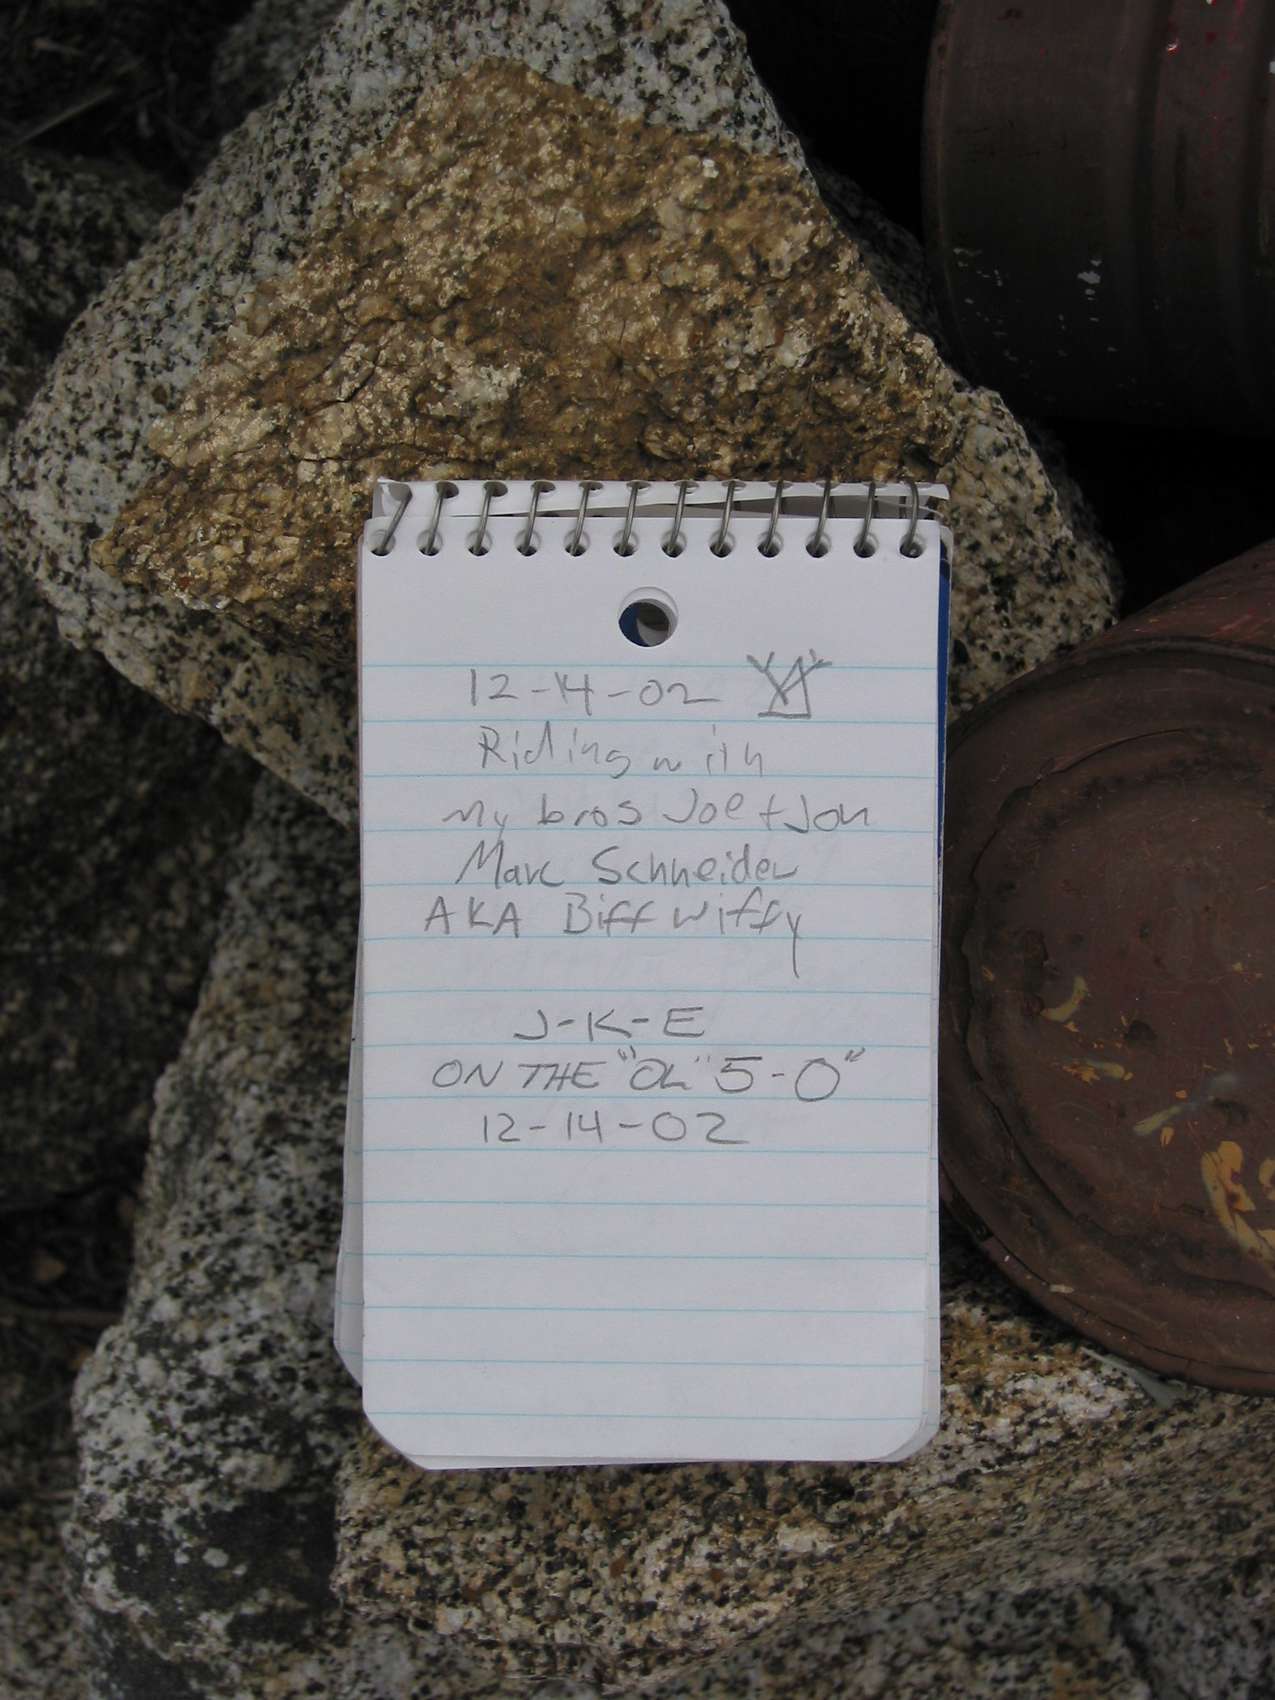 12-14-02
Riding with
my bros Joe + Jon
Marc Schneider
AKA Biff Wiffy
J-K-E
ON THE "OL" 5-0"
12-14-02